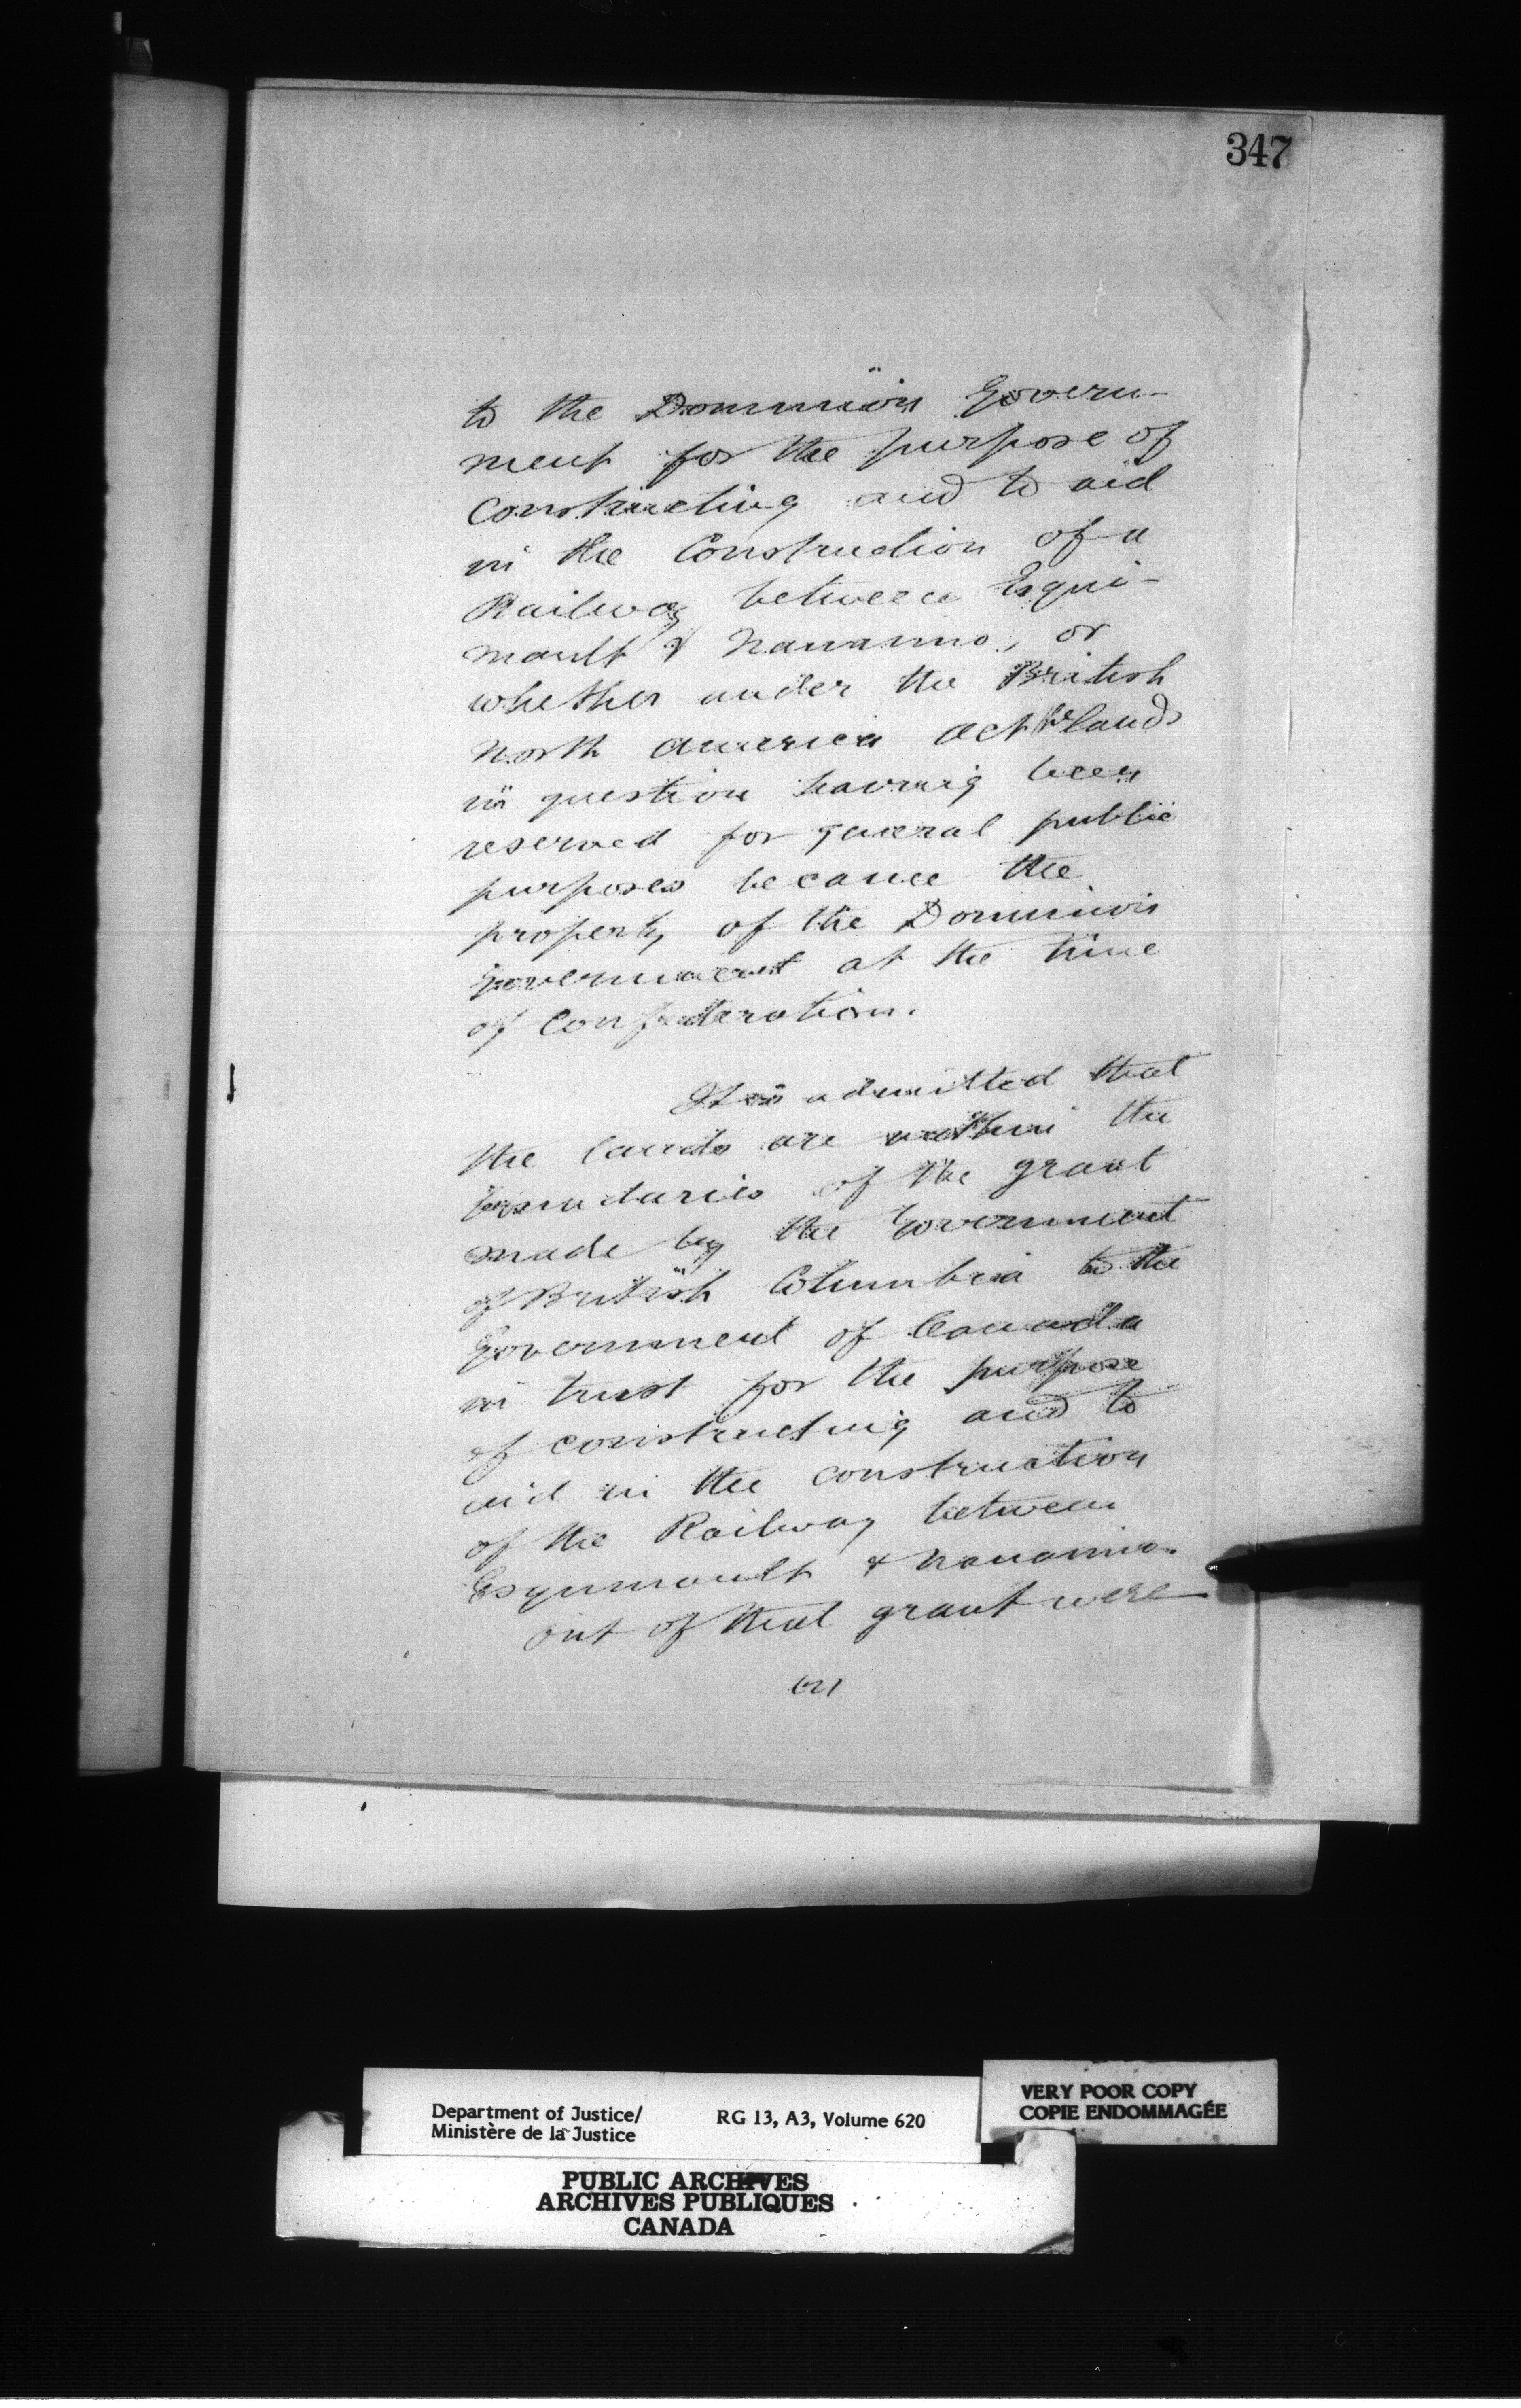 347
to the Dominion Govern-
ment for the purpose of
constructing and to aid
in the Construction of a
Railway between Esqui-
mault & Nanaimo, or
whether under the British
North America Act the lands
in question having been
reserved for general public
purposes became the
property of the Dominion
Government at the time
of Confederation.
It is admitted that
the lands are within the
boundaries of the grant
made by the Government
of British Columbia to the
Government of Canada
in trust for the purpose
of constructing and to
aid in the construction
of the Railway between
Esquimault & Nanaimo.
out of that grant were
Department of Justice/
Ministère de la Justice
RG 13, A3, Volume 620
VERY POOR COPY
COPIE ENDOMMAGÉE
PUBLIC ARCHIVES
ARCHIVES PUBLIQUES
CANADA